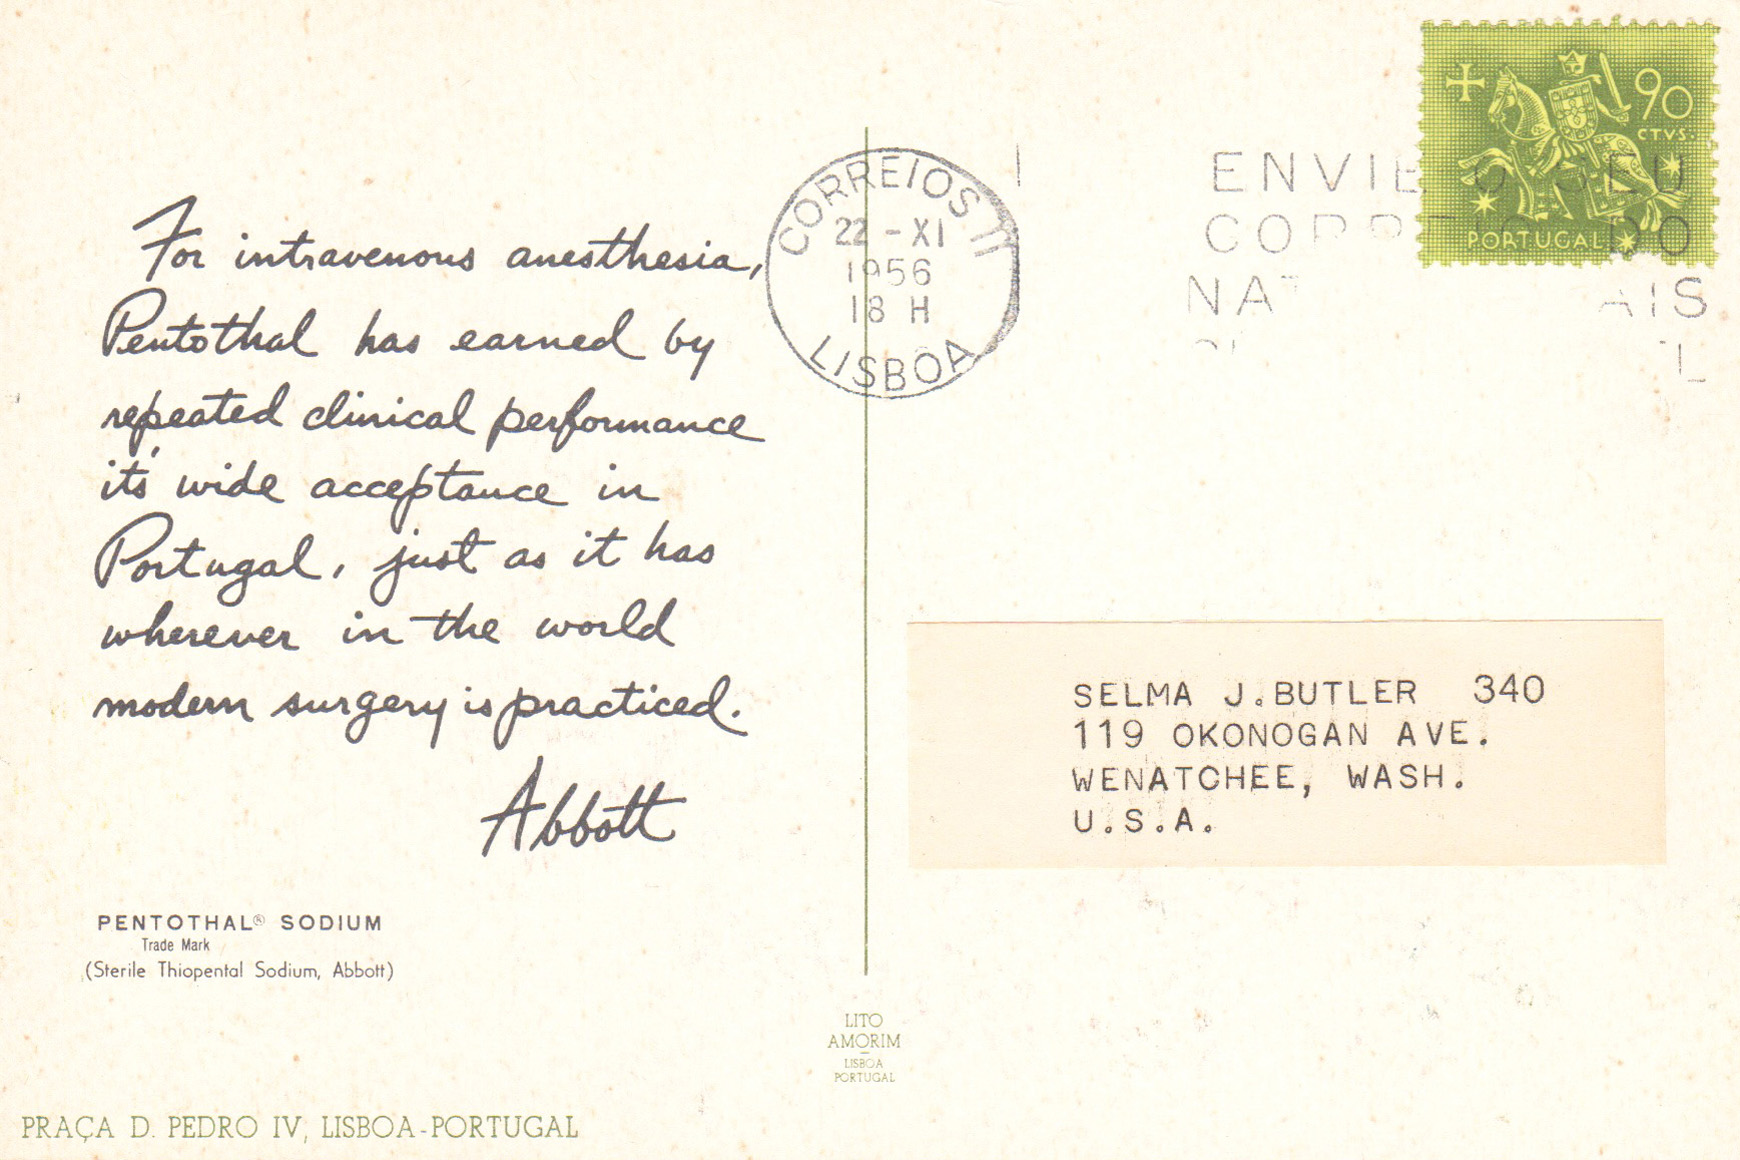 For intravenous anesthesia,
Pentothal has earned by
repeated clinical performance
it's wide acceptance in
Portugal, just as it has
wherever in the world
modern surgery is practiced.
Abbott
PENTOTHAL® SODIUM
Trade Mark
(Sterile Thiopental Sodium, Abbott)
PRAÇA D. PEDRO IV, LISBOA-PORTUGAL
LITO
AMORIM
LISBOA
PORTUGAL
CORREIOS
22-XI
1956
18 H
LISBOA
ENVIE O SEU
DO
90
CTVS.
PORTUGAL
SELMA J. BUTLER 340
119 OKONOGAN AVE.
WENATCHEE, WASH.
U.S.A.